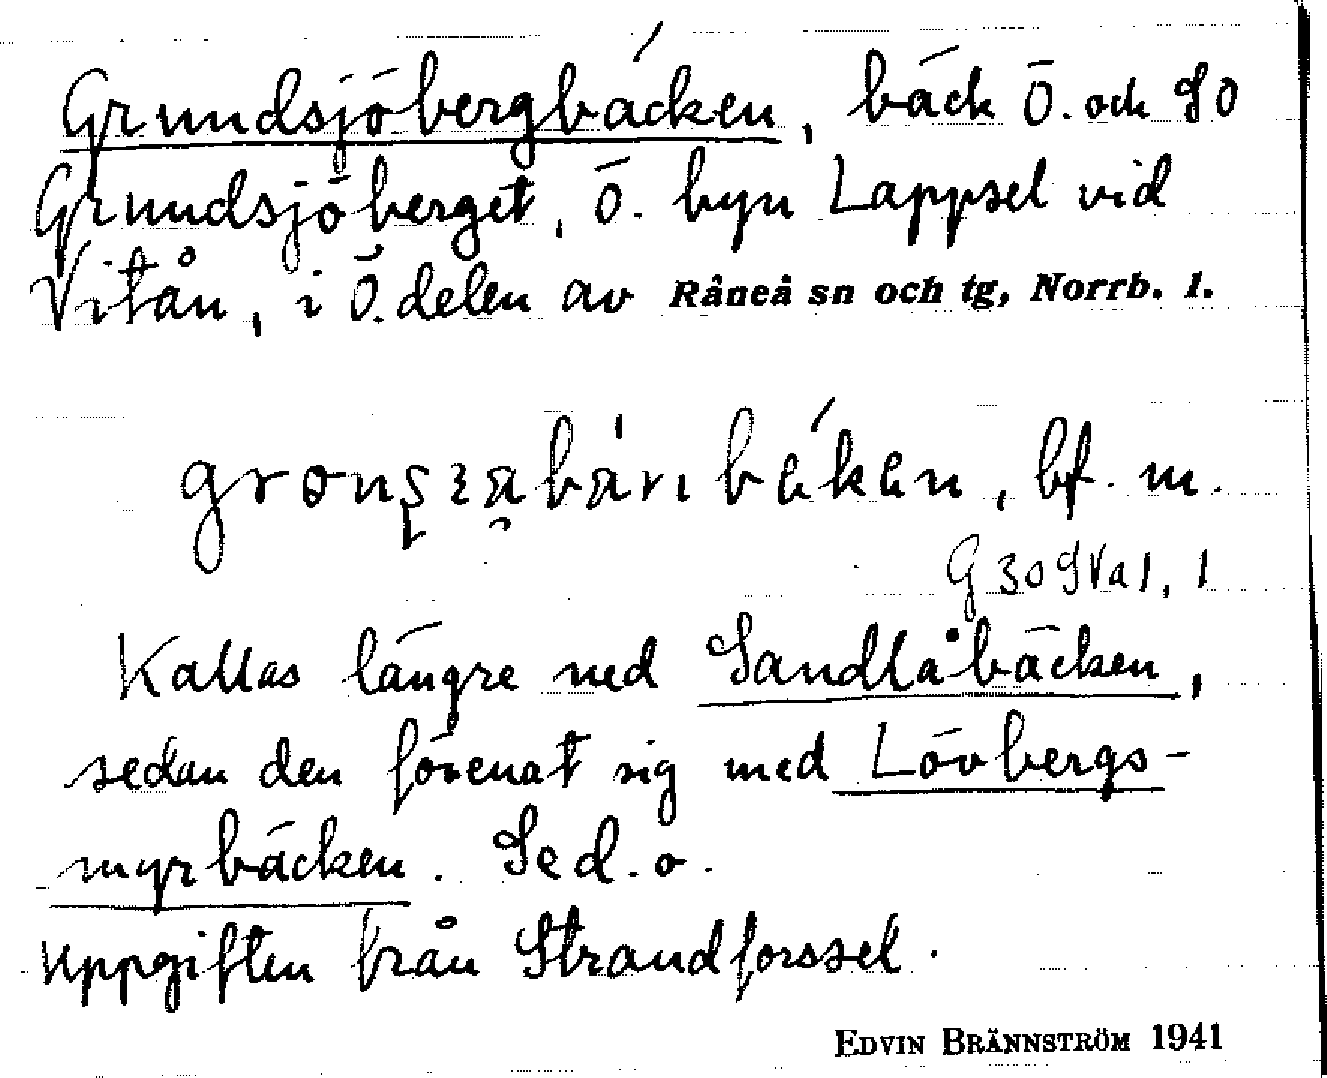 Grundsjöbergbäcken, bäck Ö. och SO
Grundsjöberget, Ö. byn Lappsel vid
Vitån, i Ö. delen av Råneå sn och tg, Norrb. l.
bf. m.
Kallas längre ned Sandlåbäcken,
sedan den förenat sig med Lövbergs-
myrbäcken. Se d. o.
Uppgiften från Strandforssel.
EDVIN BRÄNNSTRÖM 1941